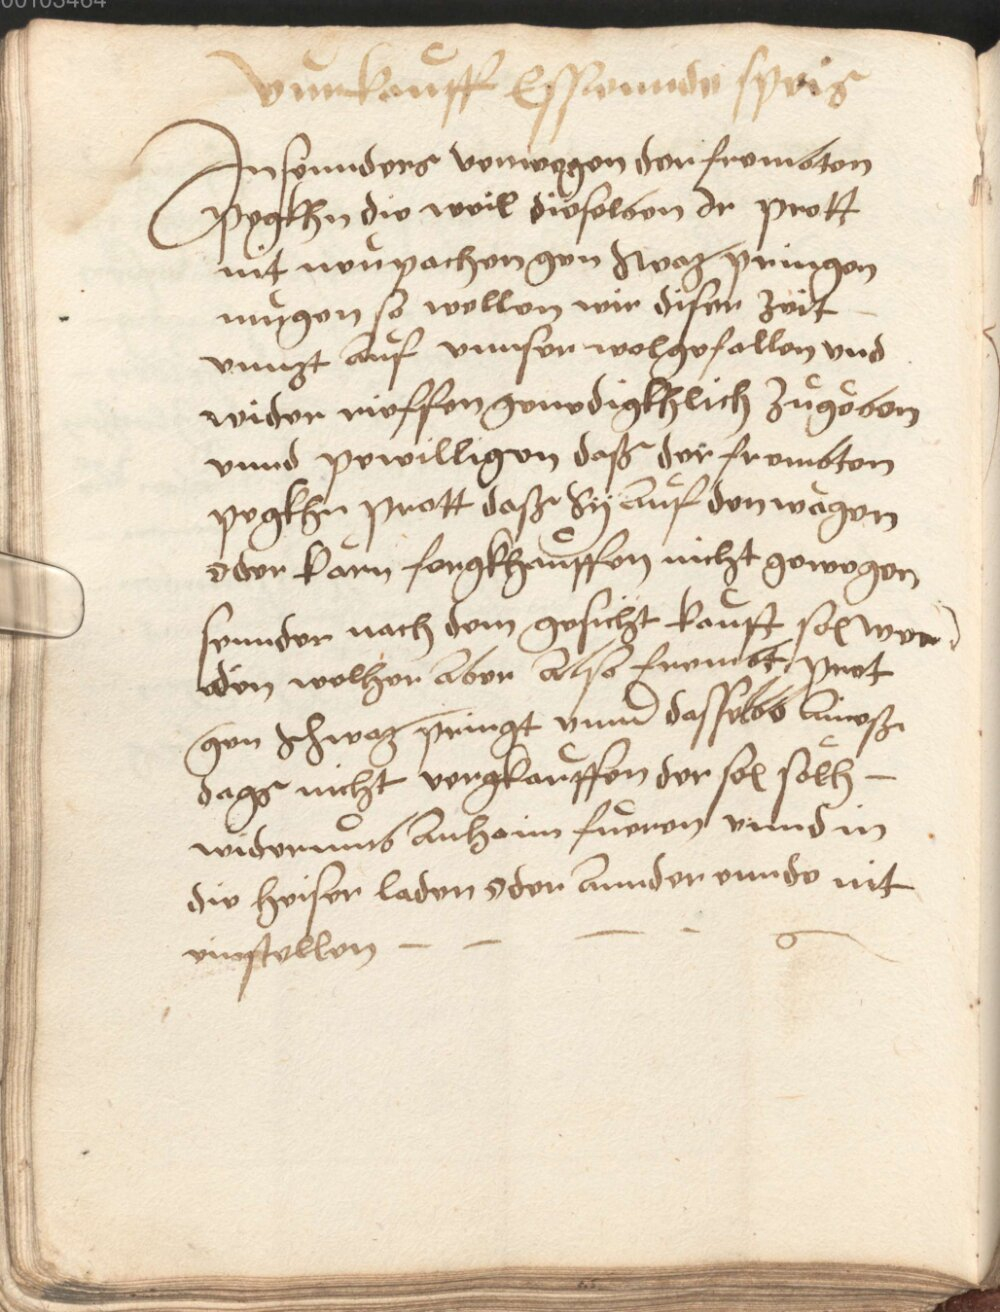 00103464
Vurkauff Essennde speis
In sonnders vonwegen der frembten
Pegkhn die weil dieselben Ir prott
nit neupachen gen Swaz pringen
mugen so wellen wir diser Zeit
unntzt auf unnser wolgefallen und
wider rieffen genedigkhlich Zugeben
unnd pewilligen daß der frembten
pegkhn prott daß Sy auf den wägen
oder karn forgkhauffen nicht gewegen
sonnder nach dem gesicht kauft sol wer
den welher aber also frembt prot
gen Schwaz pringt unnd dasselbs aineß
dags nicht vergkauffen der sol sölh
widerumb anhaim fueren unnd in
die heiser laden oder annder ennde nit
einstellen